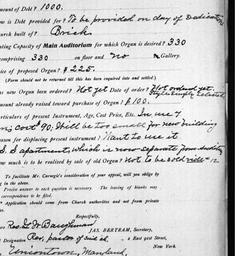 mount of Debt? 1000.
ow is Debt provided for? To be provided on day of Dedicati
urch built of? Brick.
ating Capacity of Main Auditorium for which Organ is desired? 330
omprising 330 on floor and no Gallery.
ice of proposed Organ? $225.
(Form should not be returned till this has been required date and settled)
as new Organ been ordered? Not yet Date of order? Not ordered yet.
mount already raised toward purchase of Organ? $100.
articulars of present Instrument, Age, Cost Price, Etc. In use 7
Cost 90. Will be too small for new building
eason for displacing present instrument? Want to use it
S. S. apartment, which is now separate from
ow much is to be realized by sale of old Organ? Not to be sold
To facilitate Mr. Carnegie's consideration of your appeal, will you oblige by
ing in the above.
Precise answer to each question is necessary. The leaving of blanks may
correspondence to be filed.
Application should come from Church authorities and not from private
Respectfully,
JAS. BERTRAM, Secretary,
Designation Rev, pastor of said ch. 2 East 91st Street,
New York.
Uniontown, Maryland,